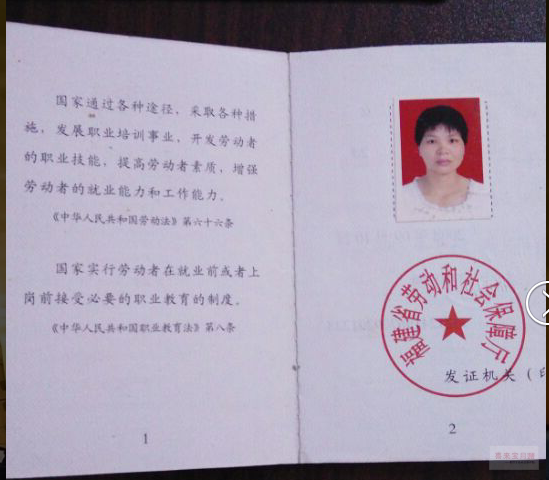 国家通过各种途径，采取各种措
施，发展职业培训事业，开发劳动者
的职业技能，提高劳动者素质，增强
劳动者的就业能力和工作能力。
《中华人民共和国劳动法》第六十六条
国家实行劳动者在就业前或者上
岗前接受必要的职业教育的制度。
《中华人民共和国职业教育法》第八条
1
福建省劳动和社会保障厅
发证机关（印
2